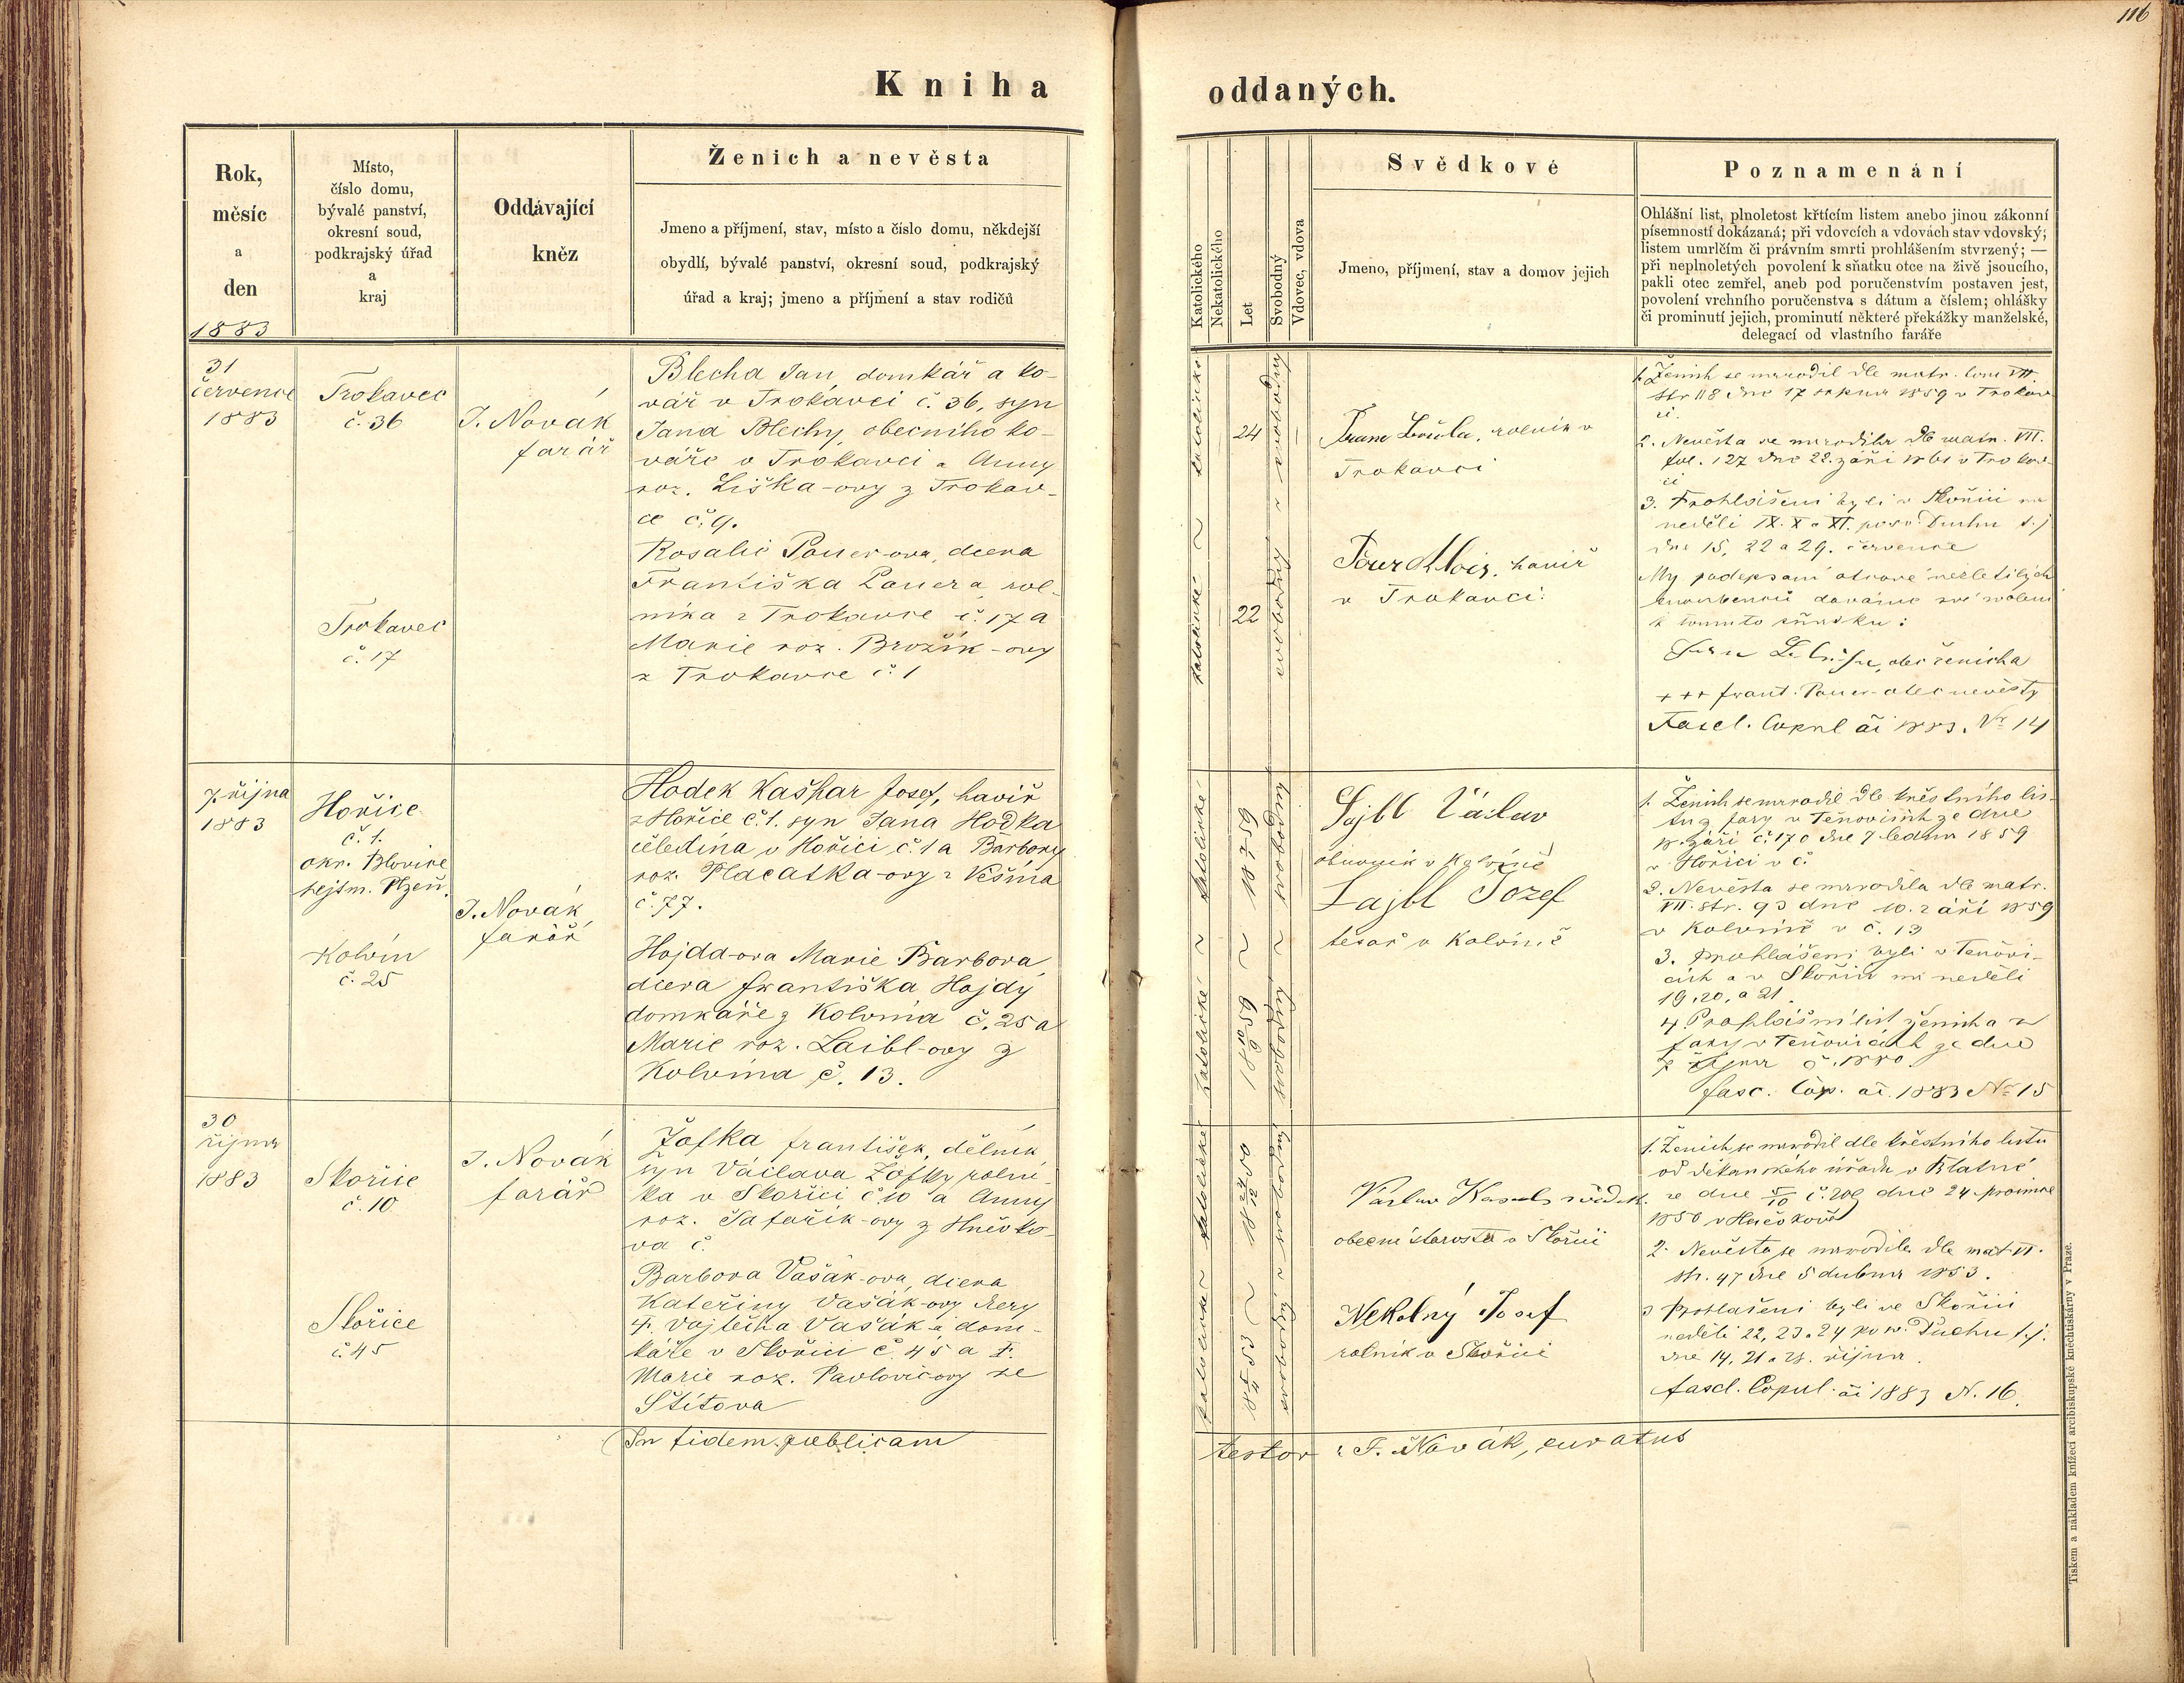 116
Kniha oddaných.
Rok,
měsíc
a
den
1883
Místo,
číslo domu,
bývalé panství,
okresní soud,
podkrajský úřad
a
kraj
Oddávající
kněz
Ženich a nevěsta
Jmeno a příjmení, stav, místo a číslo domu, někdejší
obydlí, bývalé panství, okresní soud, podkrajský
úřad a kraj; jmeno a příjmení a stav rodičů
Katolického
Nekatolického
Let
Svobodný
Vdovec, vdova
Svědkové
Jmeno, příjmení, stav a domov jejich
Poznamenání
Ohlášní list, plnoletost křtícím listem anebo jinou zákonní
písemností dokázaná; při vdovcích a vdovách stav vdovský,
listem umrlčím či právním smrti prohlášením stvrzený; —
při neplnoletých povolení k sňatku otce na živě jsoucího,
pakli otec zemřel, aneb pod poručenstvím postaven jest,
povolení vrchního poručenstva s dátum a číslem; ohlášky
či prominutí jejich, prominutí některé překážky manželské,
delegací od vlastního faráře
31
července
1883
Trokavec
č. 36
Trokavec
č. 17
J. Novák
farář
Blecha Jan, domkář a ko-
vář v Trokavci č. 36, syn
Jana Blechy, obecního ko-
váře v Trokavci a Anny
roz. Liška-ovy z Trokav-
ce č. 9.
Rosalie Pouer-ova, dcera
Františka Pouera, rol-
níka z Trokavce č. 17 a
Marie roz. Brožík-ovy
z Trokavce č. 1
katolické ~ katolické
24
22
svobodný ~ svobodný
rolník v
Trokavci
Pouer Alois, havíř
v Trokavci.
1. Ženich se narodil dle matr. tom VII.
str 118 dne 17 srpna 1859 v Trokav-
ci.
2. Nevěsta se narodila dle matr. VII.
fol. 127 dne 22. září 1861 v Trokav-
ci
3. Prohlášeni byli v Skořici na
neděli IX. X a XI. po sv. Duchu t. j
dne 15, 22 a 29. července
My podepsaní otcové nezletilých
snoubenců dáváme své svolení
k tomuto sňatku:
otec ženicha
+++ frant. Pouer otec nevěsty
Fascl. Copul ai 1883. Nr 14
7. října
1883
Hořice
č. 1.
okr. Blovice
hejtm. Plzeň.
Kolvín
č. 25
J. Novák
farář
Hodek Kašpar Josef, havíř
z Hořice č. 1. syn Jana Hodka
čeledína v Hořici č. 1 a Barbory
roz. Placatka-ovy z Vešína
č. 77.
Hojda-ova Marie Barbora,
dcera františka Hojdy
domkáře z Kolvína č. 25 a
Marie roz. Laibl-ovy z
Kolvína č. 13.
katolické ~ katolické
18 7/1 59
18 10/9 59
svobodný ~ svobodný
Lajbl Václav
obuvník v Kolvíně
Lajbl Jozef
tesař v Kolvíně
1. Ženich se narodil dle křestního lis-
tu z fary v Těnovicích ze dne
18. září č. 170 dne 7 ledna 1859
v Hořici v č.
2. Nevěsta se narodila dle matr.
VII. str. 93 dne 10. září 1859
v Kolvíně v č. 13
3. Prohlášeni byli v Tenovi-
cích a v Skořici na neděli
19, 20, a 21.
4. Prohlášní list ženicha z
fary v Tenovicích ze dne
fasc. Cop. ai. 1883 Nr 15
30
října
1883
Skořice
č. 10
Skořice
č. 45
J. Novák
farář
Žofka františek, dělník
syn Václava Žofky rolní-
ka v Skořici č. 10 a Anny
roz. Šafařík-ovy z Hněvko-
va č.
Barbora Vašák-ova, dcera
Kateřiny Vašák-ovy dcery
†. Vojtěcha Vašáka dom-
káře v Skořici č. 45 a †.
Marie roz. Pavlovicovy ze
Štítova
katolické ~ katolické
18 24/12 50
18 5/4 53
svobodný ~ svobodný
Václav svědek
obecní starosta v Skořici
Nekolný Josef
rolník v Skořici
1. Ženich se narodil dle křestního listu
od děkanského úřadu v Blatné
ze dne dne 24 prosince
1850 v Hněvkově
2. Nevěsta se narodila dle mat. VI.
str. 47 dne 5 dubna 1853.
3 Prohlášeni byli ve Skořici
neděli 22, 23 a 24 po sv. Duchu t. j.
dne 14, 21 a 28. října.
fascl. Copul. ai 1883 N. 16.
In fidem publicam
testor : J. Novák, curatus
Tiskem a nákladem knížecí arcibiskupské kněhtiskárny v Praze.